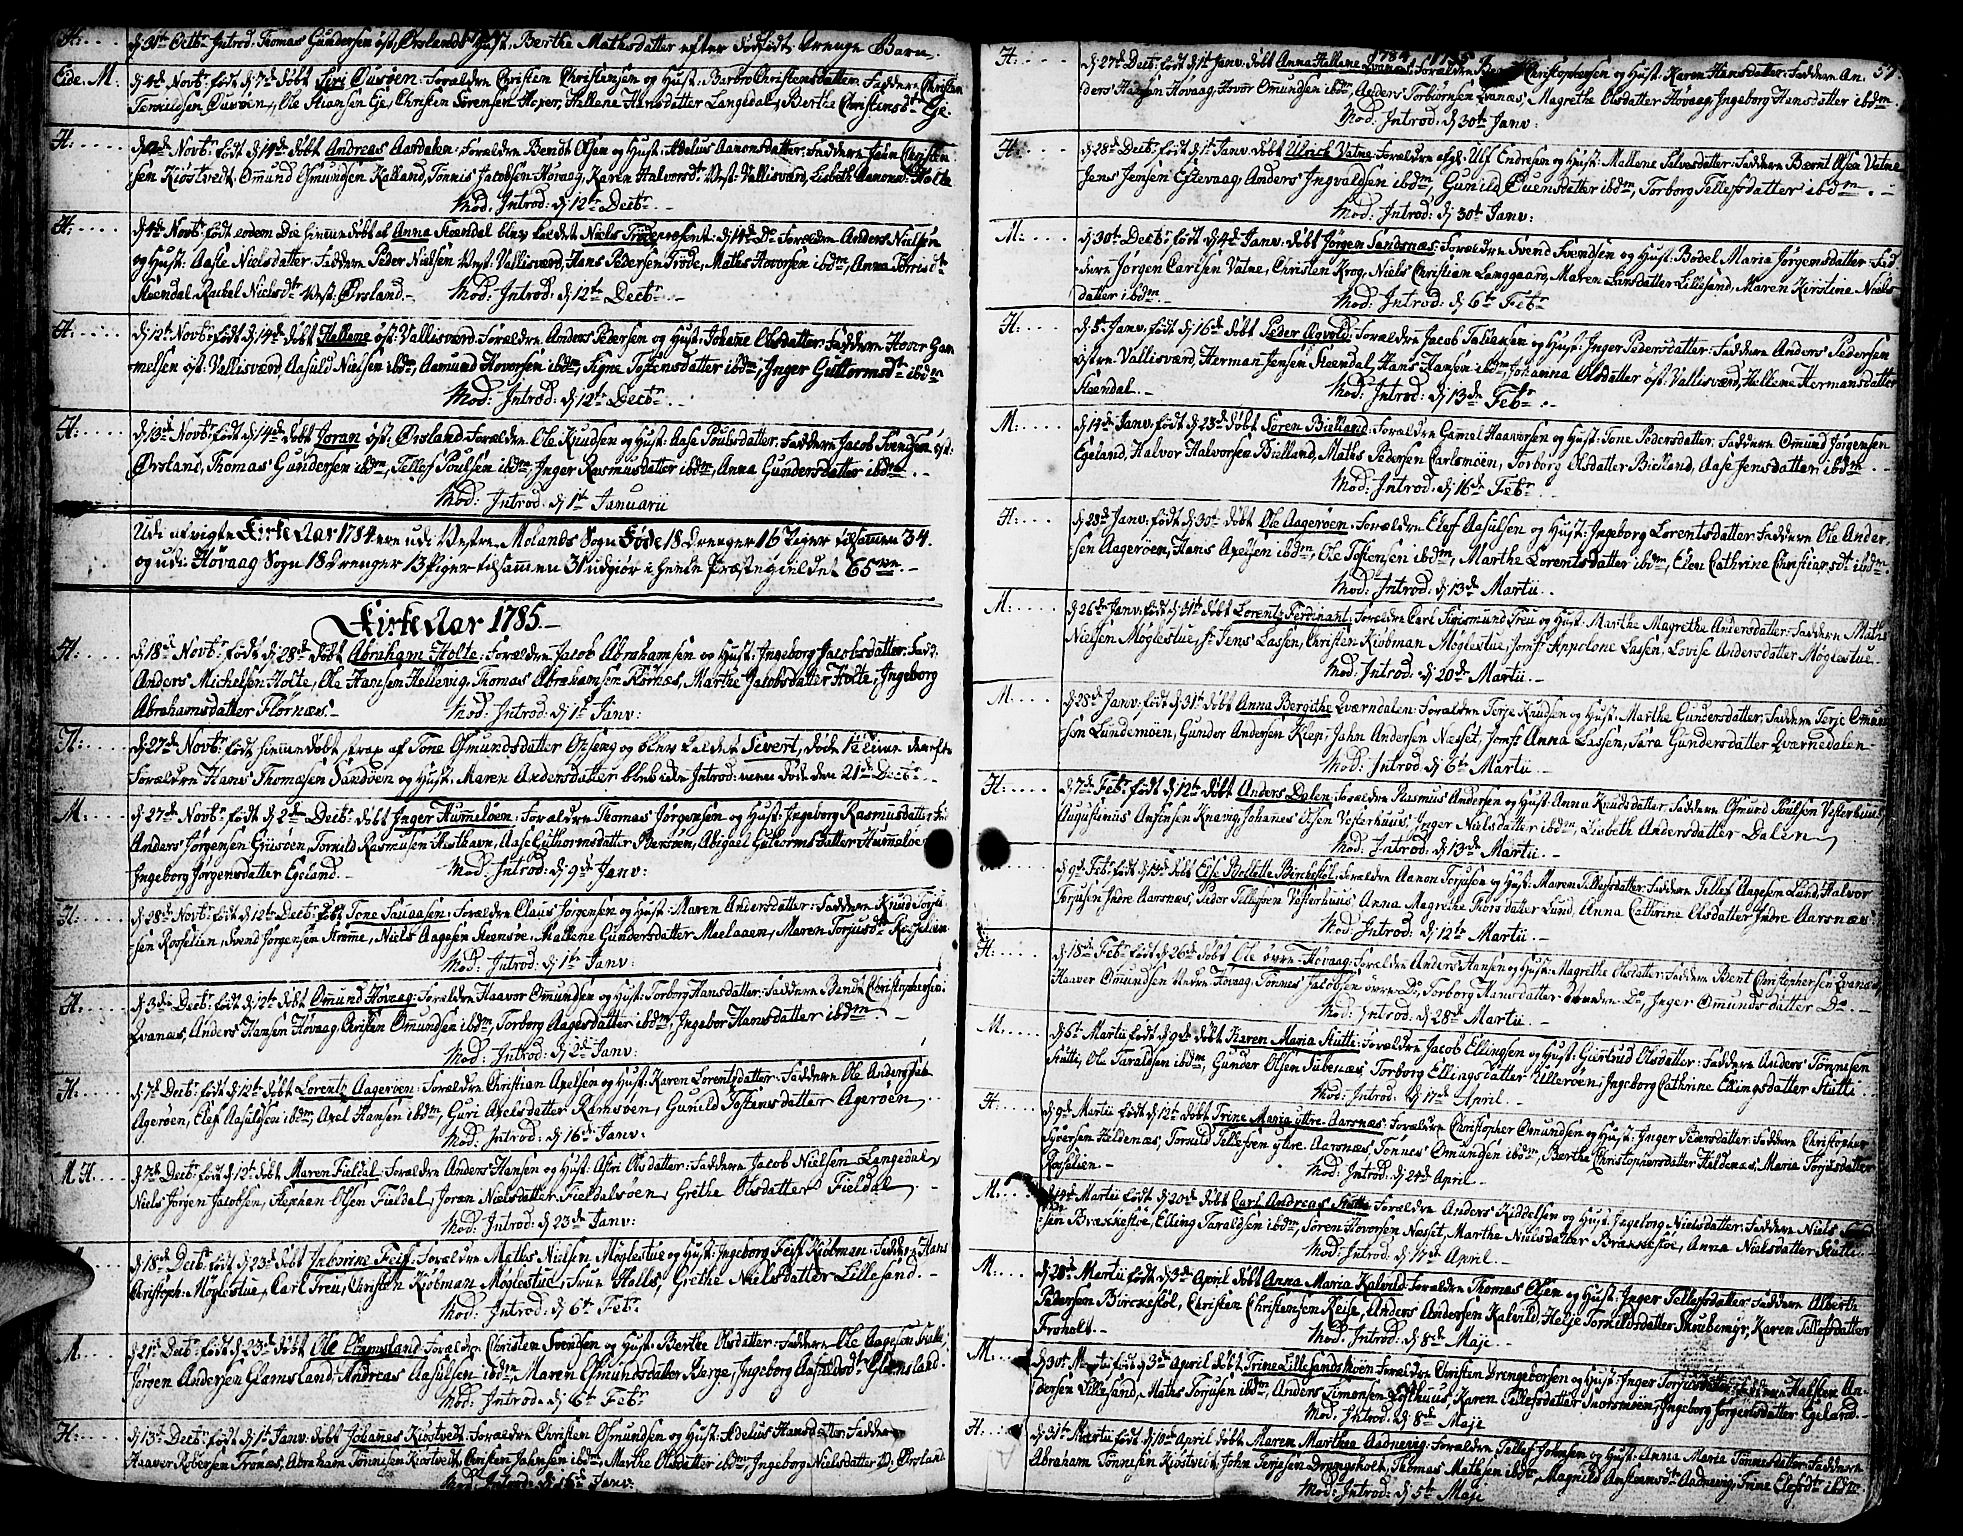 H: d 31te Octbr Introd: Thomas Gundersen øst, Ørslands Hust. Berthe Mathisdatter efter dødfødt Drenge Barn.
Eide. M. d 4de Novbr: født d 7de døbt Siri Ousøen: Forældre Christen Christensen og Hust: Barbro Christensdatter: Faddere Christen
Terkildsen Ousøen, Ole Stiansen Eje, Christen Sørensen Hoyer, Hellene Hansdatter Langedal, Berthe Christensdr Eje.
H: d 2de Novbr født d 14de døbt Andreas Aasdalen: Forældre Bendt Olsen og Hust: Adelus Aanonsdatter: Faddere Jahn Christen
sen Kiøstvedt, Omund Osmundsen Kalland, Tønnis Jacobsen Høvaag, Karen Halvorsdr Vest: Vallisværd, Lisbeth Aanonsdr Holte
Mod: Introd: d 12te Decbr
H: d 4de Novbr født eodem Die hiemmedøbt af Anna Steendal blev kaldet Niels Trøde præsent: d 14de Do Forældre Anders Nielsen
og Hust: Aasle Nielsdatter: Faddere Peder Nielsen Vest: Vallisværd, Hans Pedersen Trøde, Mathis Hovorsen ibdm, Anna Torrisdr
Steendal Rachel Nielsdr Vest: Ørsland. Mod: Introd: d 12te Decbr
H: d 12te Novbr født d 14de døbt Hellene øst: Vallisværd: Forældre Anders Pedersen og Hust: Johanne Olsdatter: Faddere Hovor Gam
melsen øst: Vallisværd, Aasuld Nielsen ibdm, Aamund Hovorsen ibdm, Signe Tostensdatter ibdm, Inger Guttormsdr ibdm
Mod: Introd: d 12te Decbr
H: d 13de Novbr født d 14de døbt Joran øst: Ørsland: Forældre Ole Knudsen og Hust: Aase Poulsdatter: Faddere Jacob Svendsen øst:
Ørsland, Thomas Gundersen ibdm, Tellef Poulsen ibdm, Inger Rasmusdatter ibdm, Anna Gundersdatter ibdm
Mod: Introd: d 1te Januarii
Udi afvigte Kirke Aar 1784 ere udi Vestre Molands Sogn Føde 18 Drenger 16 Piger tilsammen 34.
og udi Høvaag Sogn 18 Drenger 13 Piger tilsammen 31 udgiør i heele Præstegieldet 65ve.
Kirke Aar 1785.
H: d 18de Novbr født d 28de døbt Abraham Holte: Forældre Jacob Abrahamsen og Hust: Ingeborg Jacobsdatter: Fadd:
Anders Michelsen Holte, Ole Hansen Hellevig, Thomas Abrahamsen Flørnæs, Marthe Jacobsdatter Holte, Ingeborg
Abrahamsdatter Flørnæs. Mod: Introd: d 1te Janv:
H: d 27de Novbr født hiemmedøbt strax af Tone Osmundsdatter og blev kaldet Sivert, døde 1½ time derefter
Forældre Hans Thomasen Sandøen og Hust: Maren Andersdatter blev icke Introd: men døde den 21de Decbr
M: d 27de Novbr: født d 2de Decbr: døbt Inger Hummeløen: Forældre Thomas Jørgensen og Hust: Ingeborg Rasmusdatter: Fad:
Anders Jørgensen Griisøen, Torkild Rasmusen Kusthavn, Aase Guthormsdatter, Abigael Guthormsdatter Hummeløe
Ingeborg Jørgensdatter Egeland. Mod: Introd: d 9de Janv:
H: d 28de Novbr: født d 12te Decbr: døbt Tone Sauaasen: Forældre Claus Jørgensen og Hust: Maren Andersdatter: Faddere Knud Torju
sen Rosselien, Svend Jørgensen Strømme, Niels Aagesen Steensøe, Mallene Gundersdatter, Maren Torjusdr Rosselien
Mod: Introd: d 1te Janv:
H: d 3de Decbr: født d 12te døbt Omund Høvaag: Forældre Haavor Omundsen og Hust: Torborg Hansdatter: Faddere Bendt Christophersen
Qvanæs, Anders Hansen Høvaag, Christen Omundsen ibdm, Torborg Aagesdatter ibdm, Ingebor Hansdatter ibdm
Mod: Introd: d 2de Janv:
H: d 7de Decbr: født d 12te døbt Lorentz Aagerøen: Forældre Christian Axelsen og Hust: Karen Lorentzdatter: Faddere Ole Andersen
Agerøen, Elef Aasuldsen ibdm, Axel Hansen ibdm Guri Axelsdatter Ramsøen, Gunild Tostensdatter Agerøen,
Mod: Introd: d 16de Janv:
M H. d 7de Decbr: født d 12te døbt Maren Fieldal: Forældre Anders Hansen og Hust: Astri Olsdatter: Faddere Jacob Nielsen Langedal,
Niels Jørgen Jacobsen, Stephan Olsen Fieldal, Joran Nielsdatter Fieldalsøen, Grethe Olsdatter Fieldal
Mod: Introd: d 23de Janv:
M. d 18de Decbr: født d 23de døbt Feist: Forældre Mathis Nielsen Møglestue og Hust: Ingeborg Feist Kiøbman: Faddere Hans
Christoph: Møglestue, Carl Treu, Christen Kiøbman Møglestue, Frue Halls, Grethe Nielsdatter Lillesand.
Mod: Introd: d 6te Febr
M. d 21de Decbr: født d 23de døbt Ole Glamsland: Forældre Christen Svendsen og Hust: Berthe Olsdatter: Faddere Ole Aagesen
Jørgen Andersen Glamsland, Andreas Aasulsen ibdm, Maren Osmundsdatter Berge, Ingeborg Aasulsdr Glamsland.
Mod: Introd: d 6te Febr
H: d 13de Decbr: født d 1te Janv: døbt Johannes Kiøstvedt: Forældre Christen Osmundsen og Hust: Adelus Hansdatter: Faddere
Haaver Robersen Trønæs, Abraham Tønnisen Kiøstvedt, Christen Jahnsen ibdm, Marthe Olsdatter ibdm, Ingeborg Nielsdatter Ørsland
Mod: Introd: d 16de Janv:
1784. 1785. 57.
H: d 27de Decbr: født d 1te Janv: døbt Anna Hellene Qvanæs: Forældre Christophersen og Hust: Karen Hansdatter: Faddere An
ders Hansen Høvaag, Hovor Omundsen ibdm, Anders Torbiørnsen Qvanæs, Magrethe Olsdatter Høvaag, Ingeborg Hansdatter ibdm.
Mod: Introd: d 30te Janv:
H: d 28de Decbr: født d 1te Janv: døbt Ulrich Vatne: Forældre afgl: Ulf Endresen og Hust: Mallene Salvesdatter: Faddere Bærnt Olsen Vatne
Jens Jensen Estevaag, Anders Ingvaldsen ibdm, Gunild Evensdatter ibdm, Torborg Tellefsdatter ibdm.
Mod: Introd: d 30te Janv:
M: d 30te Decbr: født d 4de Janv: døbt Jørgen Sandsnæs: Forældre Svend Svendsen og Hust: Bodel Maria Jørgensdatter: Fad
dere Jørgen Carlsen Vatne, Christen Krog, Niels Christian Langgaard, Maren Larsdatter Lillesand, Maren Kirstine Niels
datter ibdm. Mod: Introd: d 6te Febr
H: d 5te Janv: født d 16de døbt Peder Agvold: Forældre Jacob Tallaksen og Hust: Inger Pedersdatter: Faddere Anders Pedersen
østre Vallisværd, Herman Jensen Steendal, Hans Hansen ibdm, Johanna Olsdatter øst: Vallisværd, Hellene Hermansdatter
Steendal. Mod: Introd: d 13de Febr
M: d 14de Janv: født d 23de døbt Søren Bielland: Forældre Gamel Haavorsen og Hust: Tone Pedersdatter: Faddere Omund Jørgensen
Egeland, Halvor Halvorsen Bielland, Mathis Pedersen Carlsmøen, Torborg Olsdatter Bielland, Aase Jensdatter ibdm
Mod: Introd: d 16de Febr
H: d 28de Janv: født d 30te døbt Ole Aagerøen: Forældre Elef Aasulsen og Hust: Ingeborg Lorentsdatter: Faddere Ole Ander
sen Aagerøen, Hans Axelsen ibdm, Ole Tostensen ibdm, Marthe Lorentsdatter ibdm, Elen Cathrine Christiansdr ibdm.
Mod: Introd: d 13de Martii
M: d 26de Janv: født d 31te døbt Lorentz Ferdinant: Forældre Carl Sigismund Treu og Hust: Marthe Magrethe Andersdatter: Faddere Mathis
Nielsen Møglestue, Sr Jens Lassen, Christen Kiøbman Møglestue, Jomfr Appolone Lassen, Lovise Andersdatter Møglestue
Mod: Introd: d 20de Martii
M: d 28de Janv: født d 31te døbt Anna Bergithe Qværndalen: Forældre Terje Knudsen og Hust: Marthe Gundersdatter: Faddere Terje Omund
sen Lundemøen, Gundor Andersen Kiep, Jahn Andersen Næsset, Jomfr Anna Lassen, Sara Gundersdatter Qvarnedalen
Mod: Introd: d 6te Martii
H: d 7de Febr: født d 12te døbt Anders Dalen: Forældre Rasmus Andersen og Hust: Anna Knudsdatter: Faddere Osmund Poulsen Vesterhuus
Augustinus Ansinsen Knavig, Johanes Olsen Vesterhuus, Inger Nielsdatter ibdm, Lisbeth Andersdatter Dalen
Mod: Introd: d 13de Martii
d 9de Febr: født d 13de døbt Else Bollette Birkestøl: Forældre Aanon Torjusen og Hust: Maren Tellefsdatter: Faddere Tellef Aagesen Lund, Halvor
Torjusen Indre Aarsnæs, Peder Tellefsen Vesterhuus, Anna Magrethe Thorsdatter Lund, Anna Cathrine Olsdatter Indre Aarsnæs
Mod: Introd: d 12te Martii
H: d 18de Febr: født d 26de døbt Ole øvre Høvaag: Forældre Anders Hansen og Hust: Magrethe Olsdatter: Faddere Bent Christophersen Qvanæs,
Haaver Omundsen Nedre Høvaag, Tønnes Jacobsen øvre Do, Torborg Hansdatter Nedre Do, Inger Omundsdatter Do.
Mod: Introd: d 28de Martii
M: d 6te Martii født d 9de døbt Karen Maria Stutte: Forældre Jacob Ellingsen og Hust: Giertrud Olsdatter: Faddere Anders Tønnisen
Stutte, Ole Taraldsen ibdm, Gunder Olsen Tubenæs, Torborg Ellingsdatter Ullerøen, Ingeborg Cathrine Ellingsdatter Stutte
Mod: Introd: d 17de April
H: d 9de Martii født d 12te døbt Trine Maria yttre Aarsnæs: Forældre Christopher Omundsen og Hust: Inger Pedersdatter: Faddere Christopher
Syversen Heldenæs, Torkild Tellefsen yttre Aarsnæs, Tønnes Omundsen ibdm, Berthe Christophersdatter Heldenæs, Maria Torjusdatter
Rosselien. Mod: Introd: d 24de April
M: d 14de Martii født d 20de døbt Carl Andreas Stutte: Forældre Anders Kiddelsen og Hust: Ingeborg Nielsdatter: Faddere Niels
sen Brækkestøe, Elling Taraldsen ibdm, Søren Hovorsen Næsset, Marthe Nielsdatter Brækkestøe, Anna Nielsdatter Stutte
Mod: Introd: d 17de April
M. d 28de Martii født d 3de April døbt Anna Maria Kalvild: Forældre Thomas Olsen og Hust: Inger Tellefsdatter: Faddere Alberth
Pedersen Birckestøl, Christen Christensen Reise, Anders Andersen Kalvild, Helje Torkildsdatter Skrubemyr, Karen Tellefsdatter
Froholt. Mod: Introd: d 8de Maje
M. d 30te Martii født d 3de April døbt Trine Lillesandsmoen: Forældre Christen Drengeborsen og Hust: Inger Torjusdatter: Faddere Halsten An
dersen Lillesand, Mathis Torjusen ibdm, Anders Simonsen Lofthuus, Karen Tellefsdatter, Ingeborg Jørgensdatter Egeland
Mod: Introd: d 8de Maje
H: d 31te Martii født d 10de April døbt Maren Marthee Aadnevig: Forældre Tellef Johnsen og Hust: Anna Maria Tønnesdatter: Faddere
Abraham Tønnesen Kiøstvedt, John Terjesen Drangsholt, Thomas Mathisen ibdm, Magnild Anstensdr Aadnevig, Trine Elefsdr ibdm.
Mod: Introd: d 5te Maje